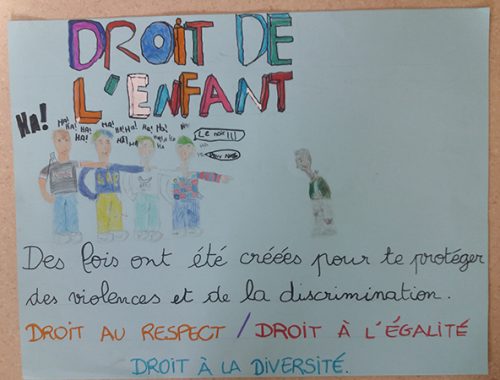 DROIT DE
L'ENFANT
HA!
HA! HA! HA! HA! HA! HA! HA!
HA! HA! HA
LE NOIR!!!
HA
Des lois ont été créées pour te protéger
des violences et de la discrimination.
DROIT AU RESPECT / DROIT À L'ÉGALITÉ
DROIT À LA DIVERSITÉ.